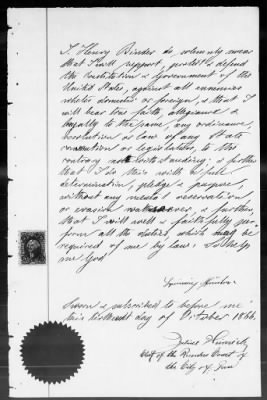 I, Henry Binder do solemnly swear
that I will support, protect & defend
the Constitution & Government of the
United States, against all enemies
whether domestic or foreign, & that I
will bear true faith, allegiance &
loyalty to the same, any ordinance,
resolution or law of any State
convention or legislature, to the
contrary notwithstanding; & further
that I do this with a full
determination, pledge & purpose,
without any mental reservation
or evasion whatsoever, & further,
that I will well & faithfully per-
form all the duties, which may be
required of me by law; So help
me God
Sworn & subscribed to before me
this day of October 1866.
Clerk of the Court of
the City of